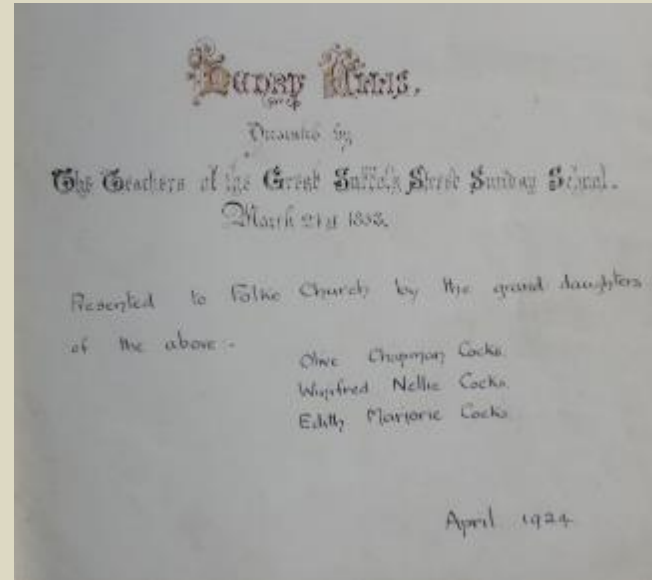 Henry
Presented by
The Teachers of the Great Suffolk Street Sunday School.
March 21st
Presented to Folke Church by the grand daughters
of the above -
Olive Chapman Cocks.
Winifred Nellie Cocks.
Edith Marjorie Cocks.
April 1924